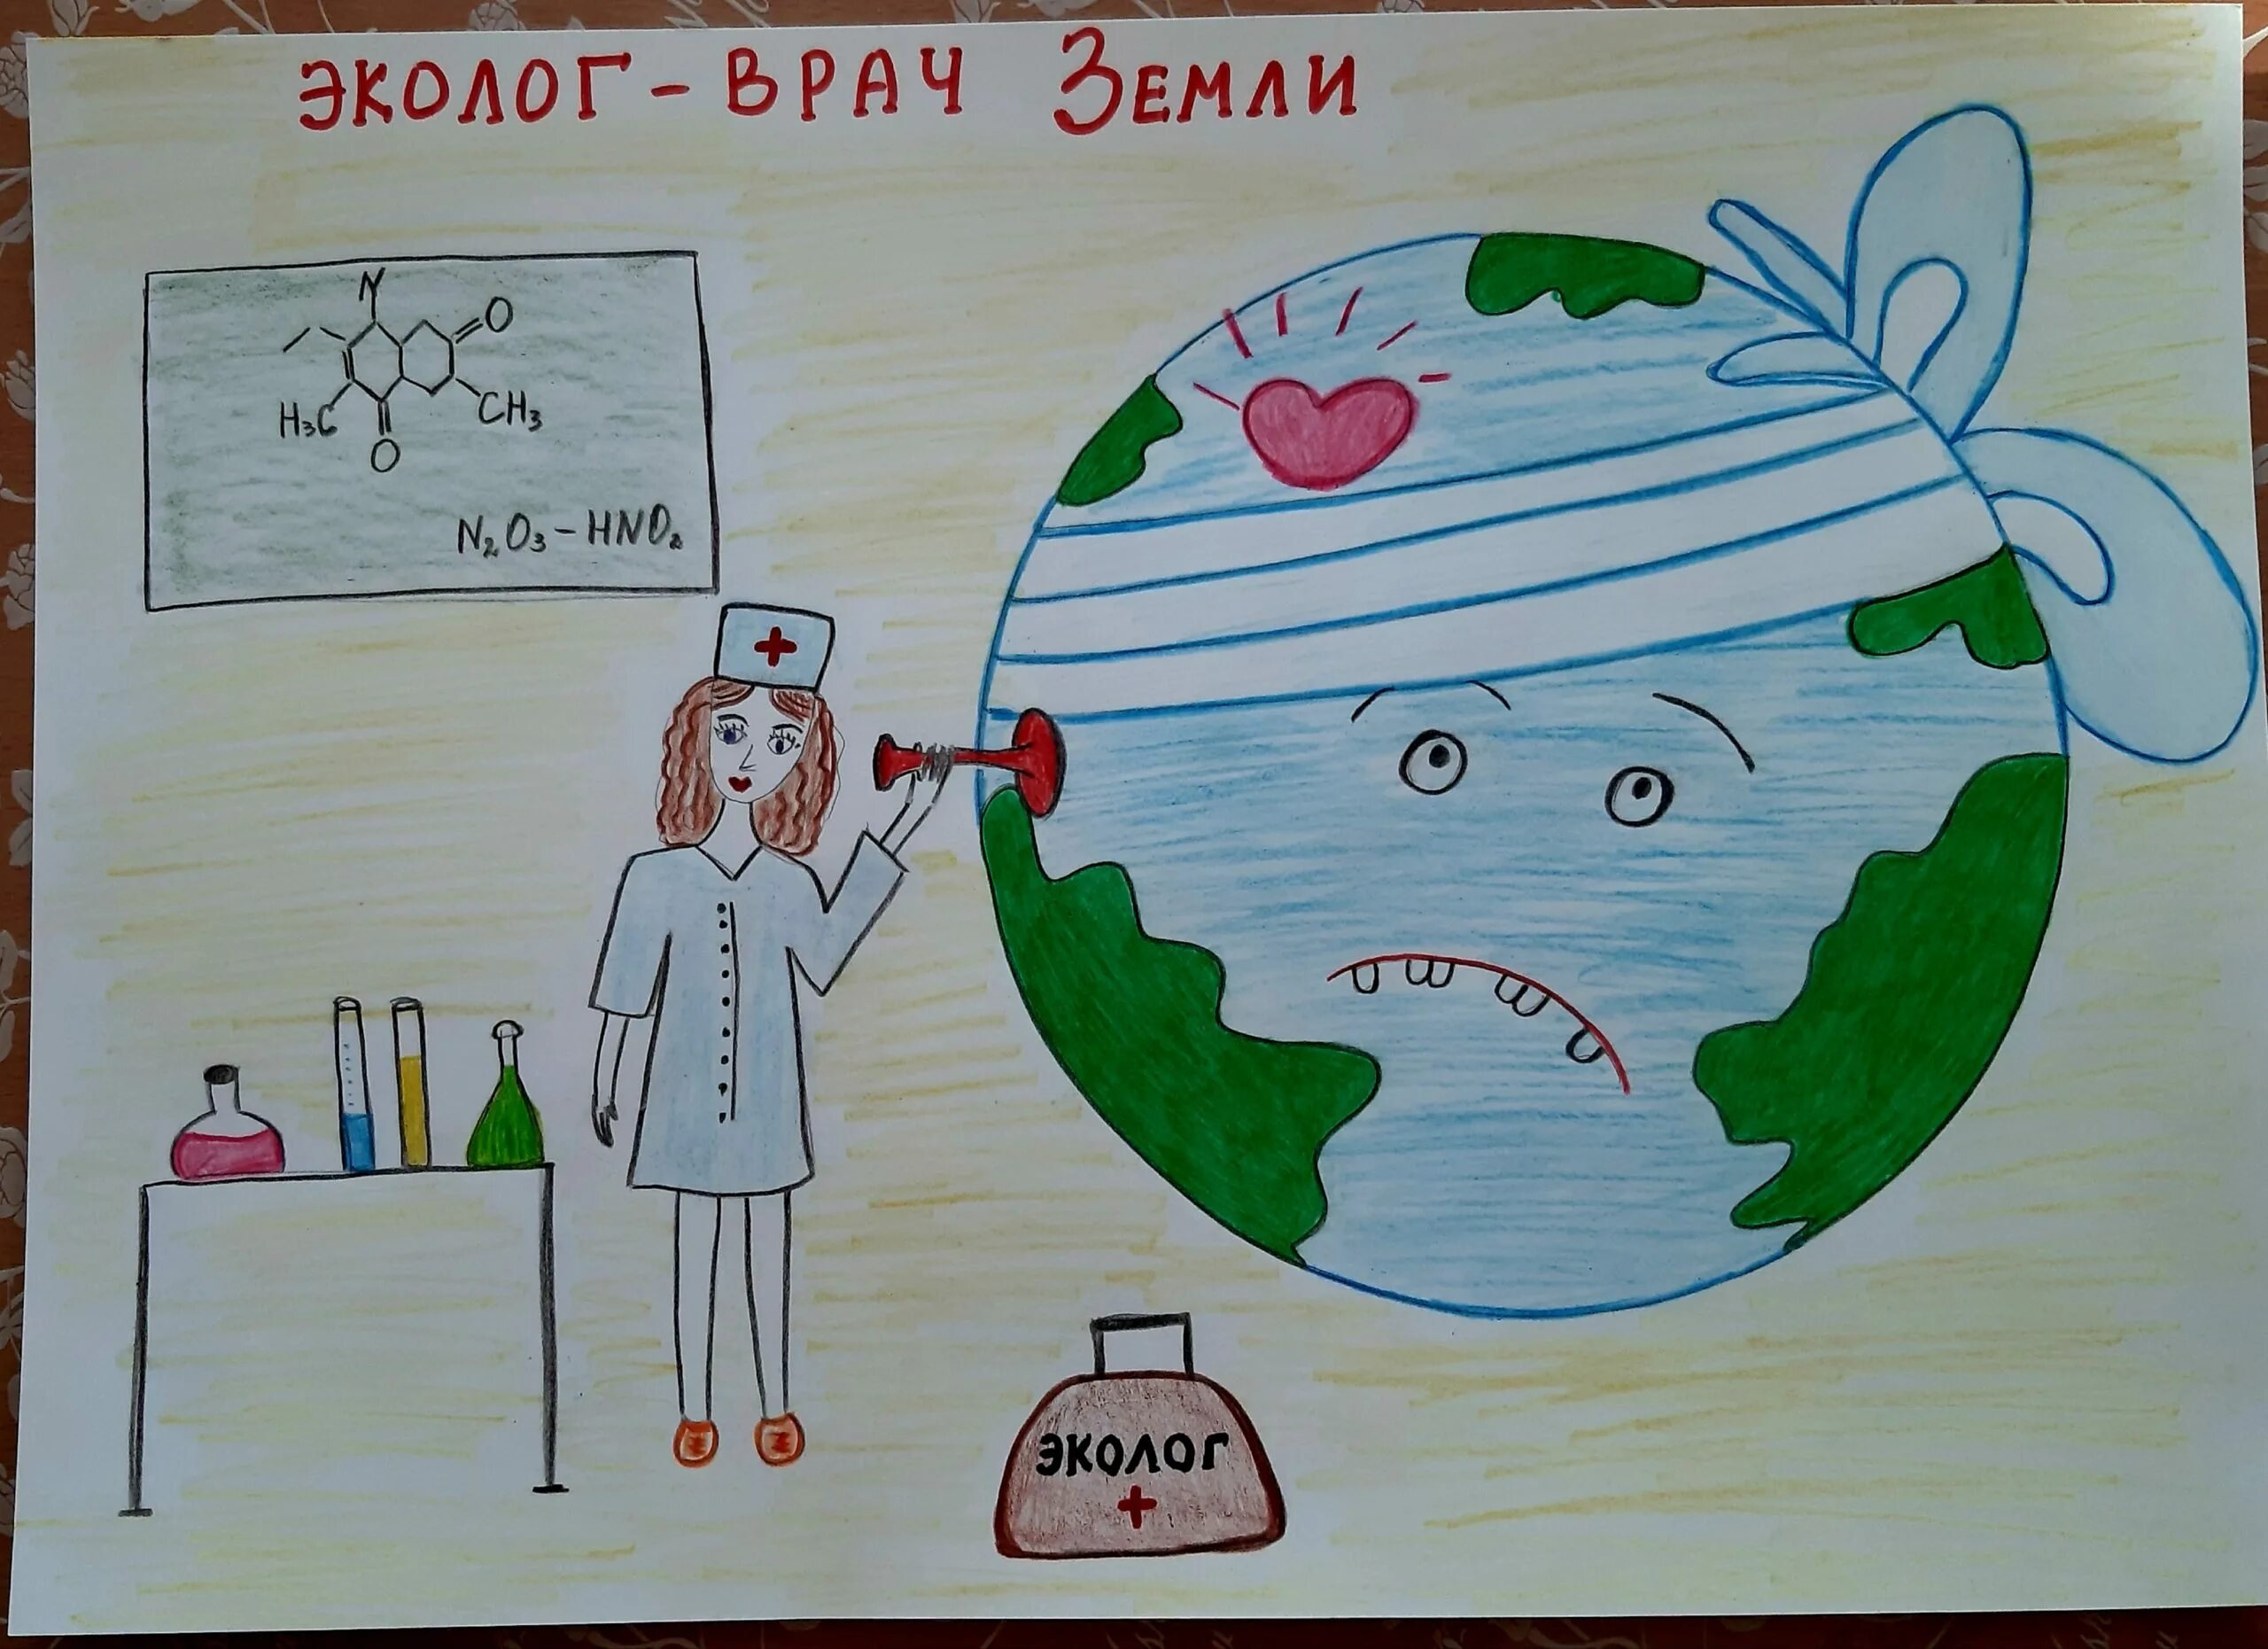 ЭКОЛОГ - ВРАЧ ЗЕМЛИ
N
O
H₃C
CH₃
O
N₂O₃ - HNO₂
ЭКОЛОГ